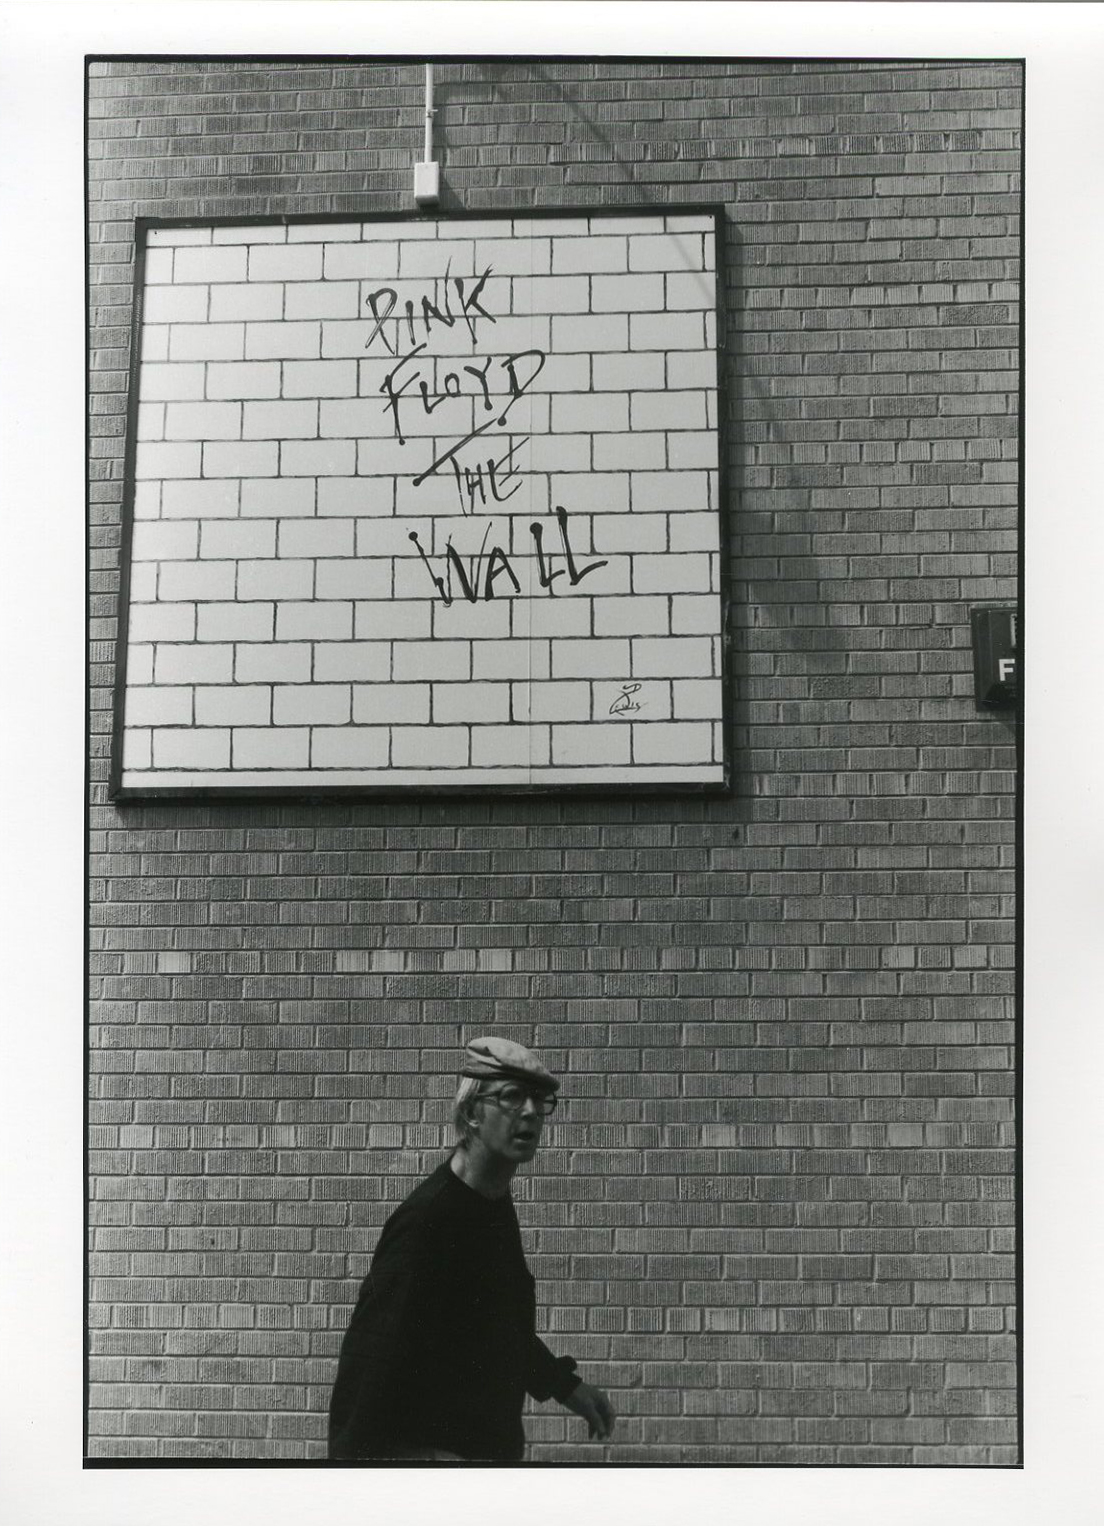 PINK
FLOYD
THE
WALL
LEWIS
F